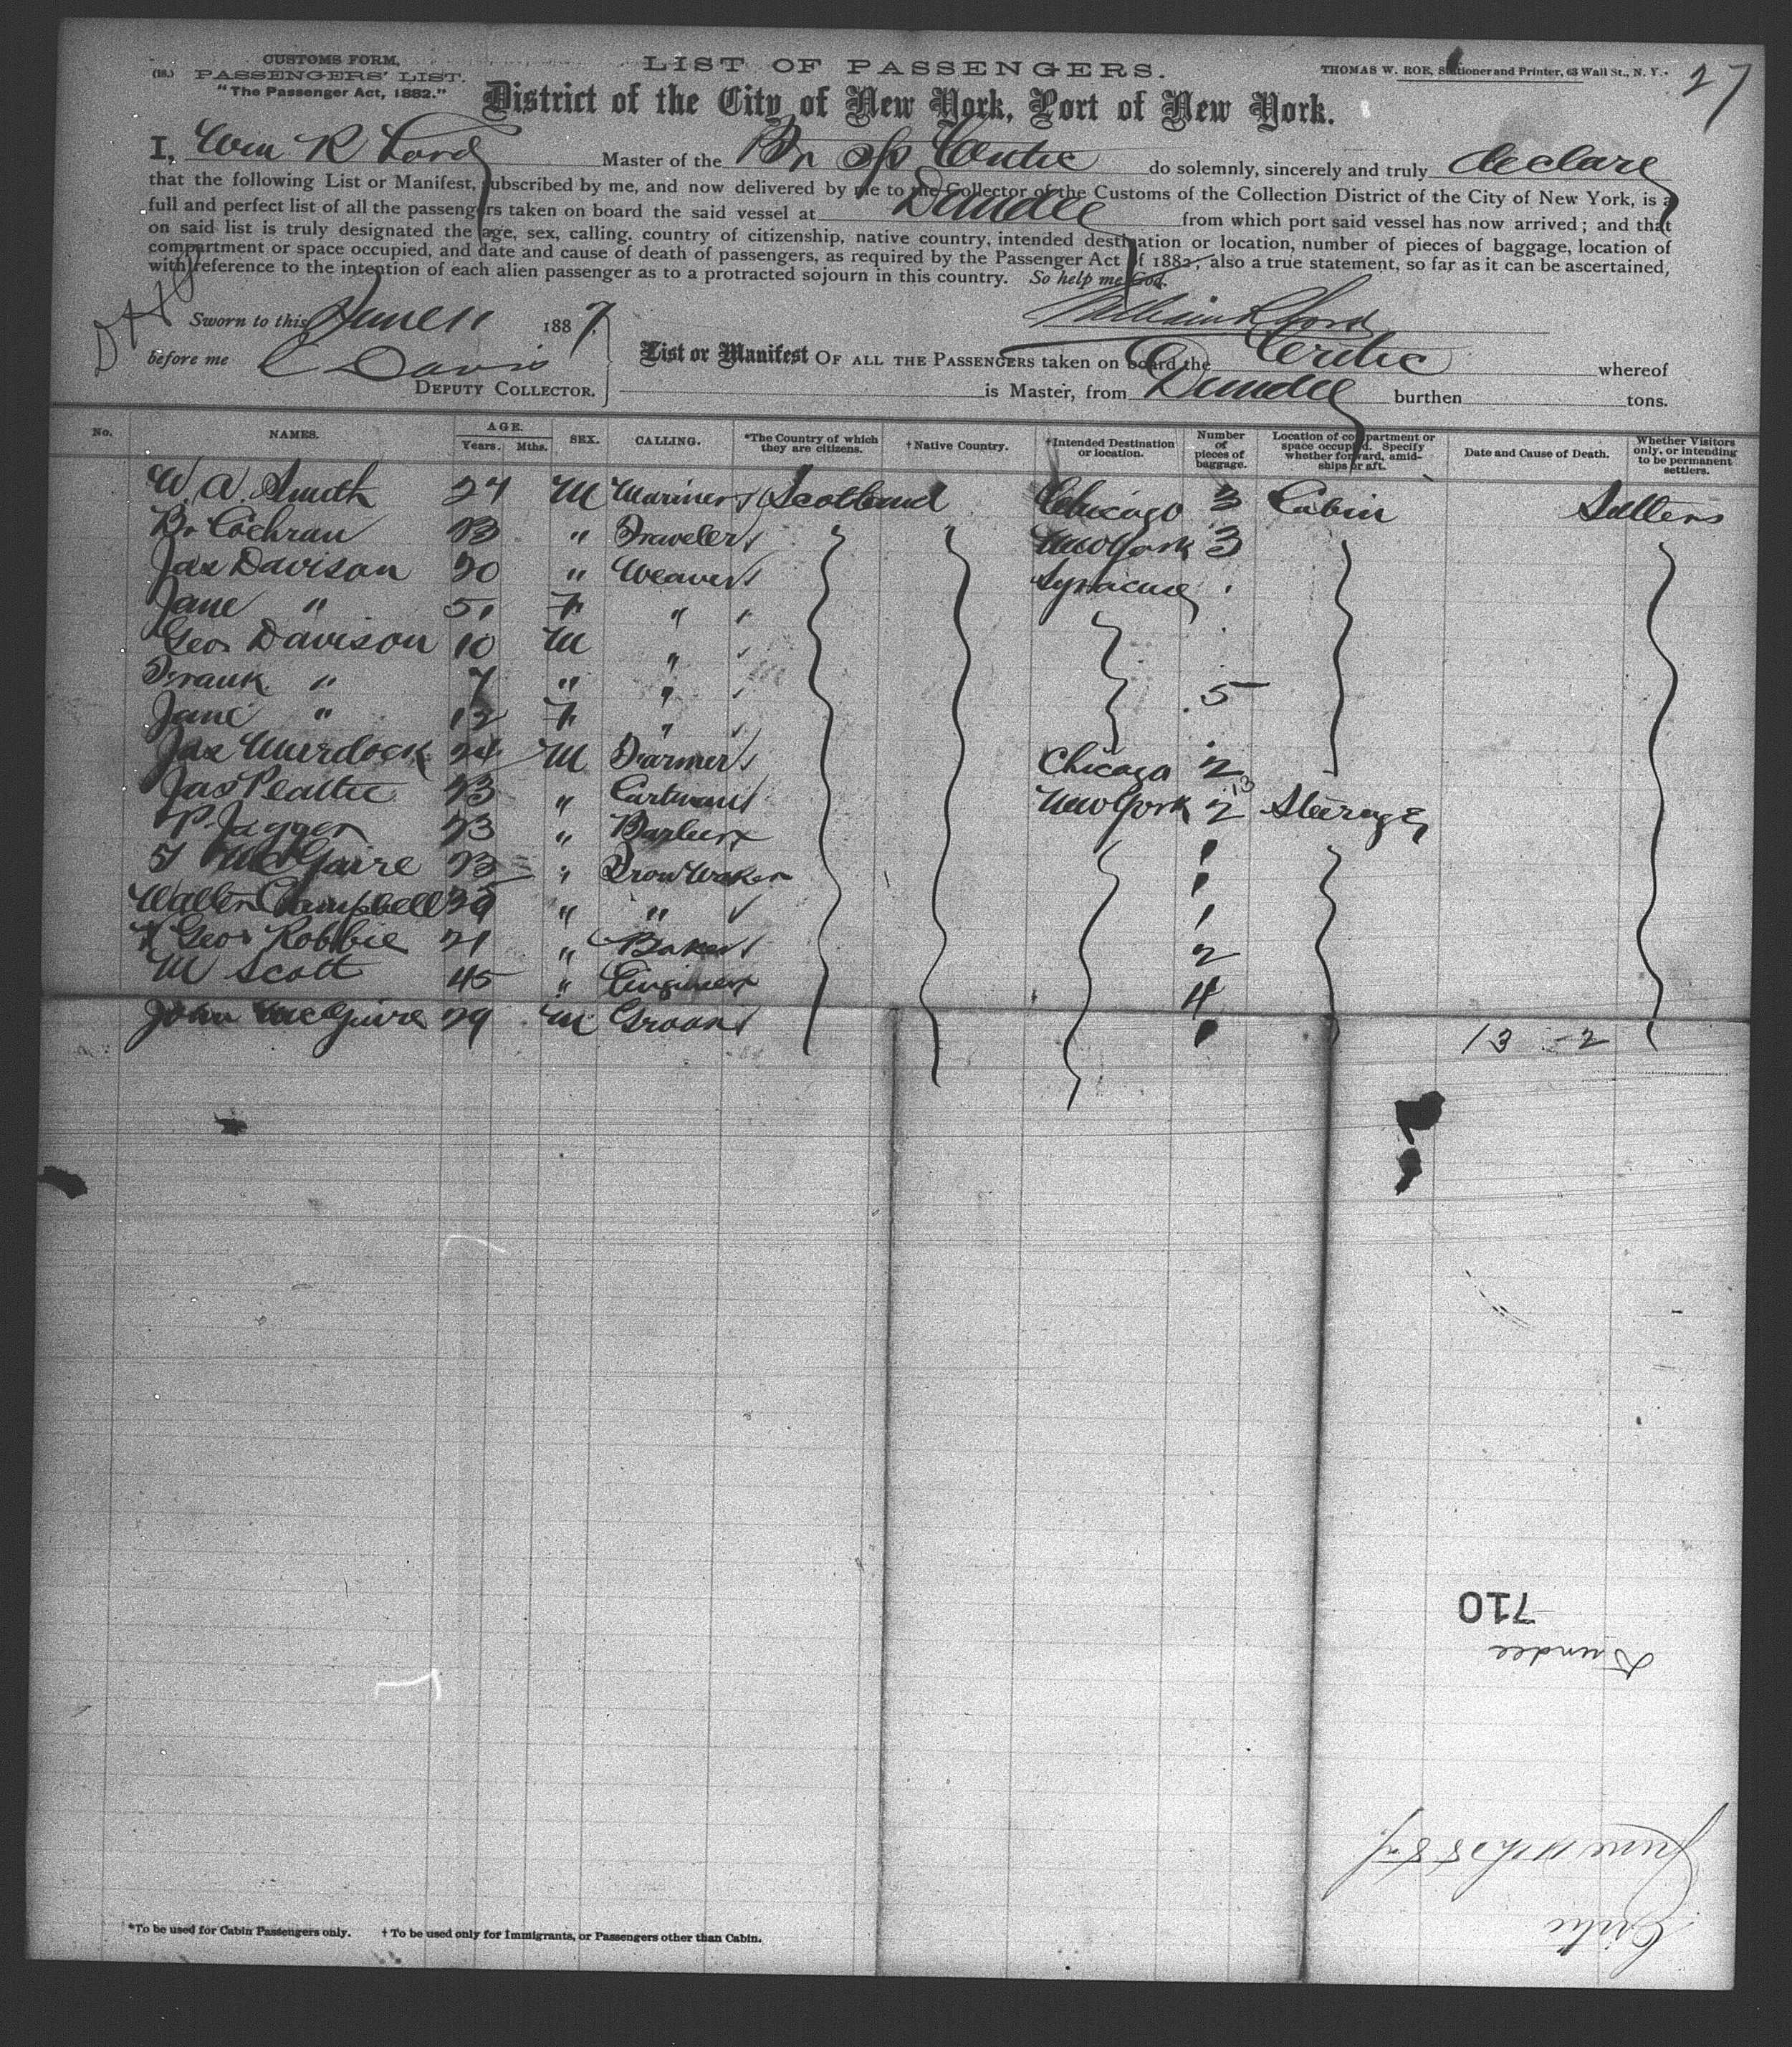 CUSTOMS FORM,
(18.) PASSENGERS' LIST.
"The Passenger Act, 1882."
LIST OF PASSENGERS.
THOMAS W. ROE, Stationer and Printer, 63 Wall St., N. Y.
27
District of the City of New York, Port of New York.
I, Wm R Lord Master of the Br Critic do solemnly, sincerely and truly declare
that the following List or Manifest, subscribed by me, and now delivered by me to the Collector of the Customs of the Collection District of the City of New York, is a
full and perfect list of all the passengers taken on board the said vessel at Dundee from which port said vessel has now arrived; and that
on said list is truly designated the age, sex, calling, country of citizenship, native country, intended destination or location, number of pieces of baggage, location of
compartment or space occupied, and date and cause of death of passengers, as required by the Passenger Act of 1882, also a true statement, so far as it can be ascertained,
with reference to the intention of each alien passenger as to a protracted sojourn in this country. So help me God.
Sworn to this June 11 1887.
William R Lord
before me C Davis
DEPUTY COLLECTOR.
List or Manifest OF ALL THE PASSENGERS taken on board the Critic whereof
is Master, from Dundee burthen tons.
No. NAMES. AGE. Years. Mths. SEX. CALLING. *The Country of which they are citizens. †Native Country. †Intended Destination or location. Number of pieces of baggage. Location of compartment or space occupied. Specify whether forward, amidships or aft. Date and Cause of Death. Whether Visitors only, or intending to be permanent settlers.
W. A. Smith 24 M Mariner Scotland Chicago 3 Cabin Settlers
Br Cochran 23 " Traveler New York 3
Jas Davison 50 " Weaver Syracuse
Jane " 51 F "
Geo. Davison 10 M "
Frank " 7 " " 5
Jane " 12 F "
Jas Murdock 24 M Farmer Chicago 2
13
Jas Peattie 23 " Cartman New York 2 Steerage
P. Jagger 23 " Barber 1
McGuire 23 " Iron Worker 1
Walter Campbell " " 1
Geo. Robbie 21 " Baker 2
M Scott 45 " Engineer 4
John McGuire 29 M Groom 1
13 - 2
710
Dundee
June 11th 1887
Critic
*To be used for Cabin Passengers only. †To be used only for Immigrants, or Passengers other than Cabin.